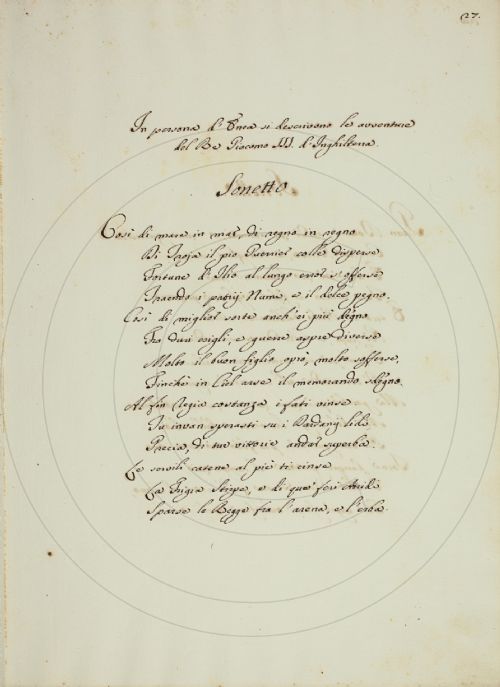 27.
In persona d'Enea si descrivono le avventure
del Re Giacomo III. d'Inghilterra.
Sonetto
Così di mare in mar, di regno in regno
Di Troja il pio Guerrier colle disperse
Fortune d'Ilio al lungo error s'offerse
Traendo i patrij Numi, e il dolce pegno.
Così di miglior sorte anch'ei più degno
Fra duri esigli, e guerre aspre diverse
Molto il buon figlio oprò, molto sofferse,
Finchè in Ciel arse il memorando sdegno.
Al fin Regia costanza i fati vinse
Tu invan sperasti su i Dardanij lidi
Grecia, di tue vittorie andar superba.
Le servili catene al piè ti cinse
La Frigia Stirpe, e di que' feri Atridi
Sparse le Regge fra l'arena, e l'erba.